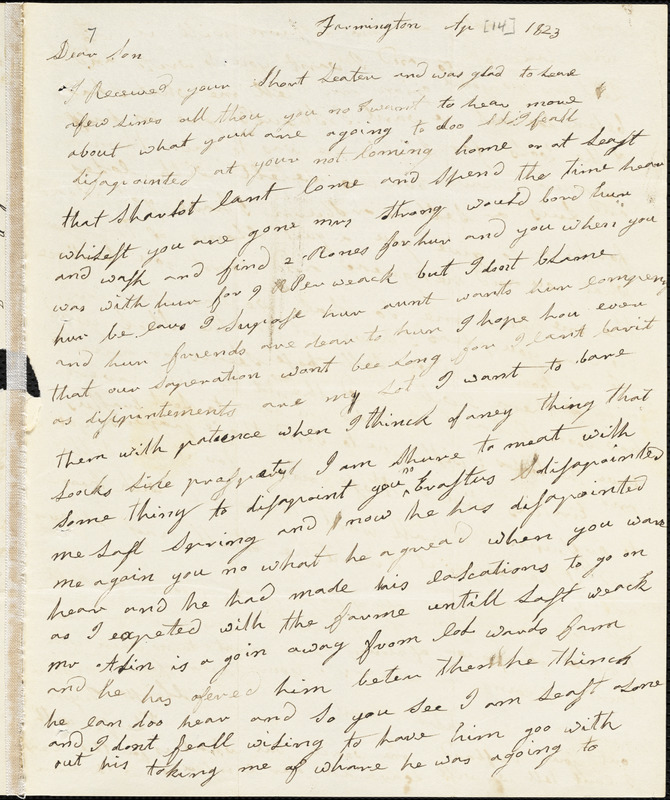 Farmington Ap [14] 1823
Dear Son
I Receved your Short Leater and was glad to heare
a few Lines all thou you no I want to hear more
about what your are agoing to doo I feall
disapointed at your not Coming home or at Least
that Sharlot Cant Come and Spend the time hear
whilest you are gone mrs Strong would bord hur
and wash and find 2 Romes for hur and you when you
was with hur for 9 Per weack but I dont blame
hur be caus I Supose hur aunt wants hur compeny
and hur friends are dear to hur I hope hou ever
that our Saperation wont bee Long for I Cant bar it
as disipintements are my Lot I want to bare
them with patience when I thinck of aney thing that
Looks Like prosperity I am Shure to meat with
Some thing to disapoint you no Erastus disapointed
me Last Spring and now he has disapointed
me again you no what he agread when you ware
hear and he had made his calcations to go on
as I expeted with the farme untill Last weack
mr is a goin away from Lod wards farm
and he has ofered him beter then he thincks
he can doo hear and So you See I am Leaft alone
and I dont feall wiling to have him goo with
out his taking me of whare he was agoing to